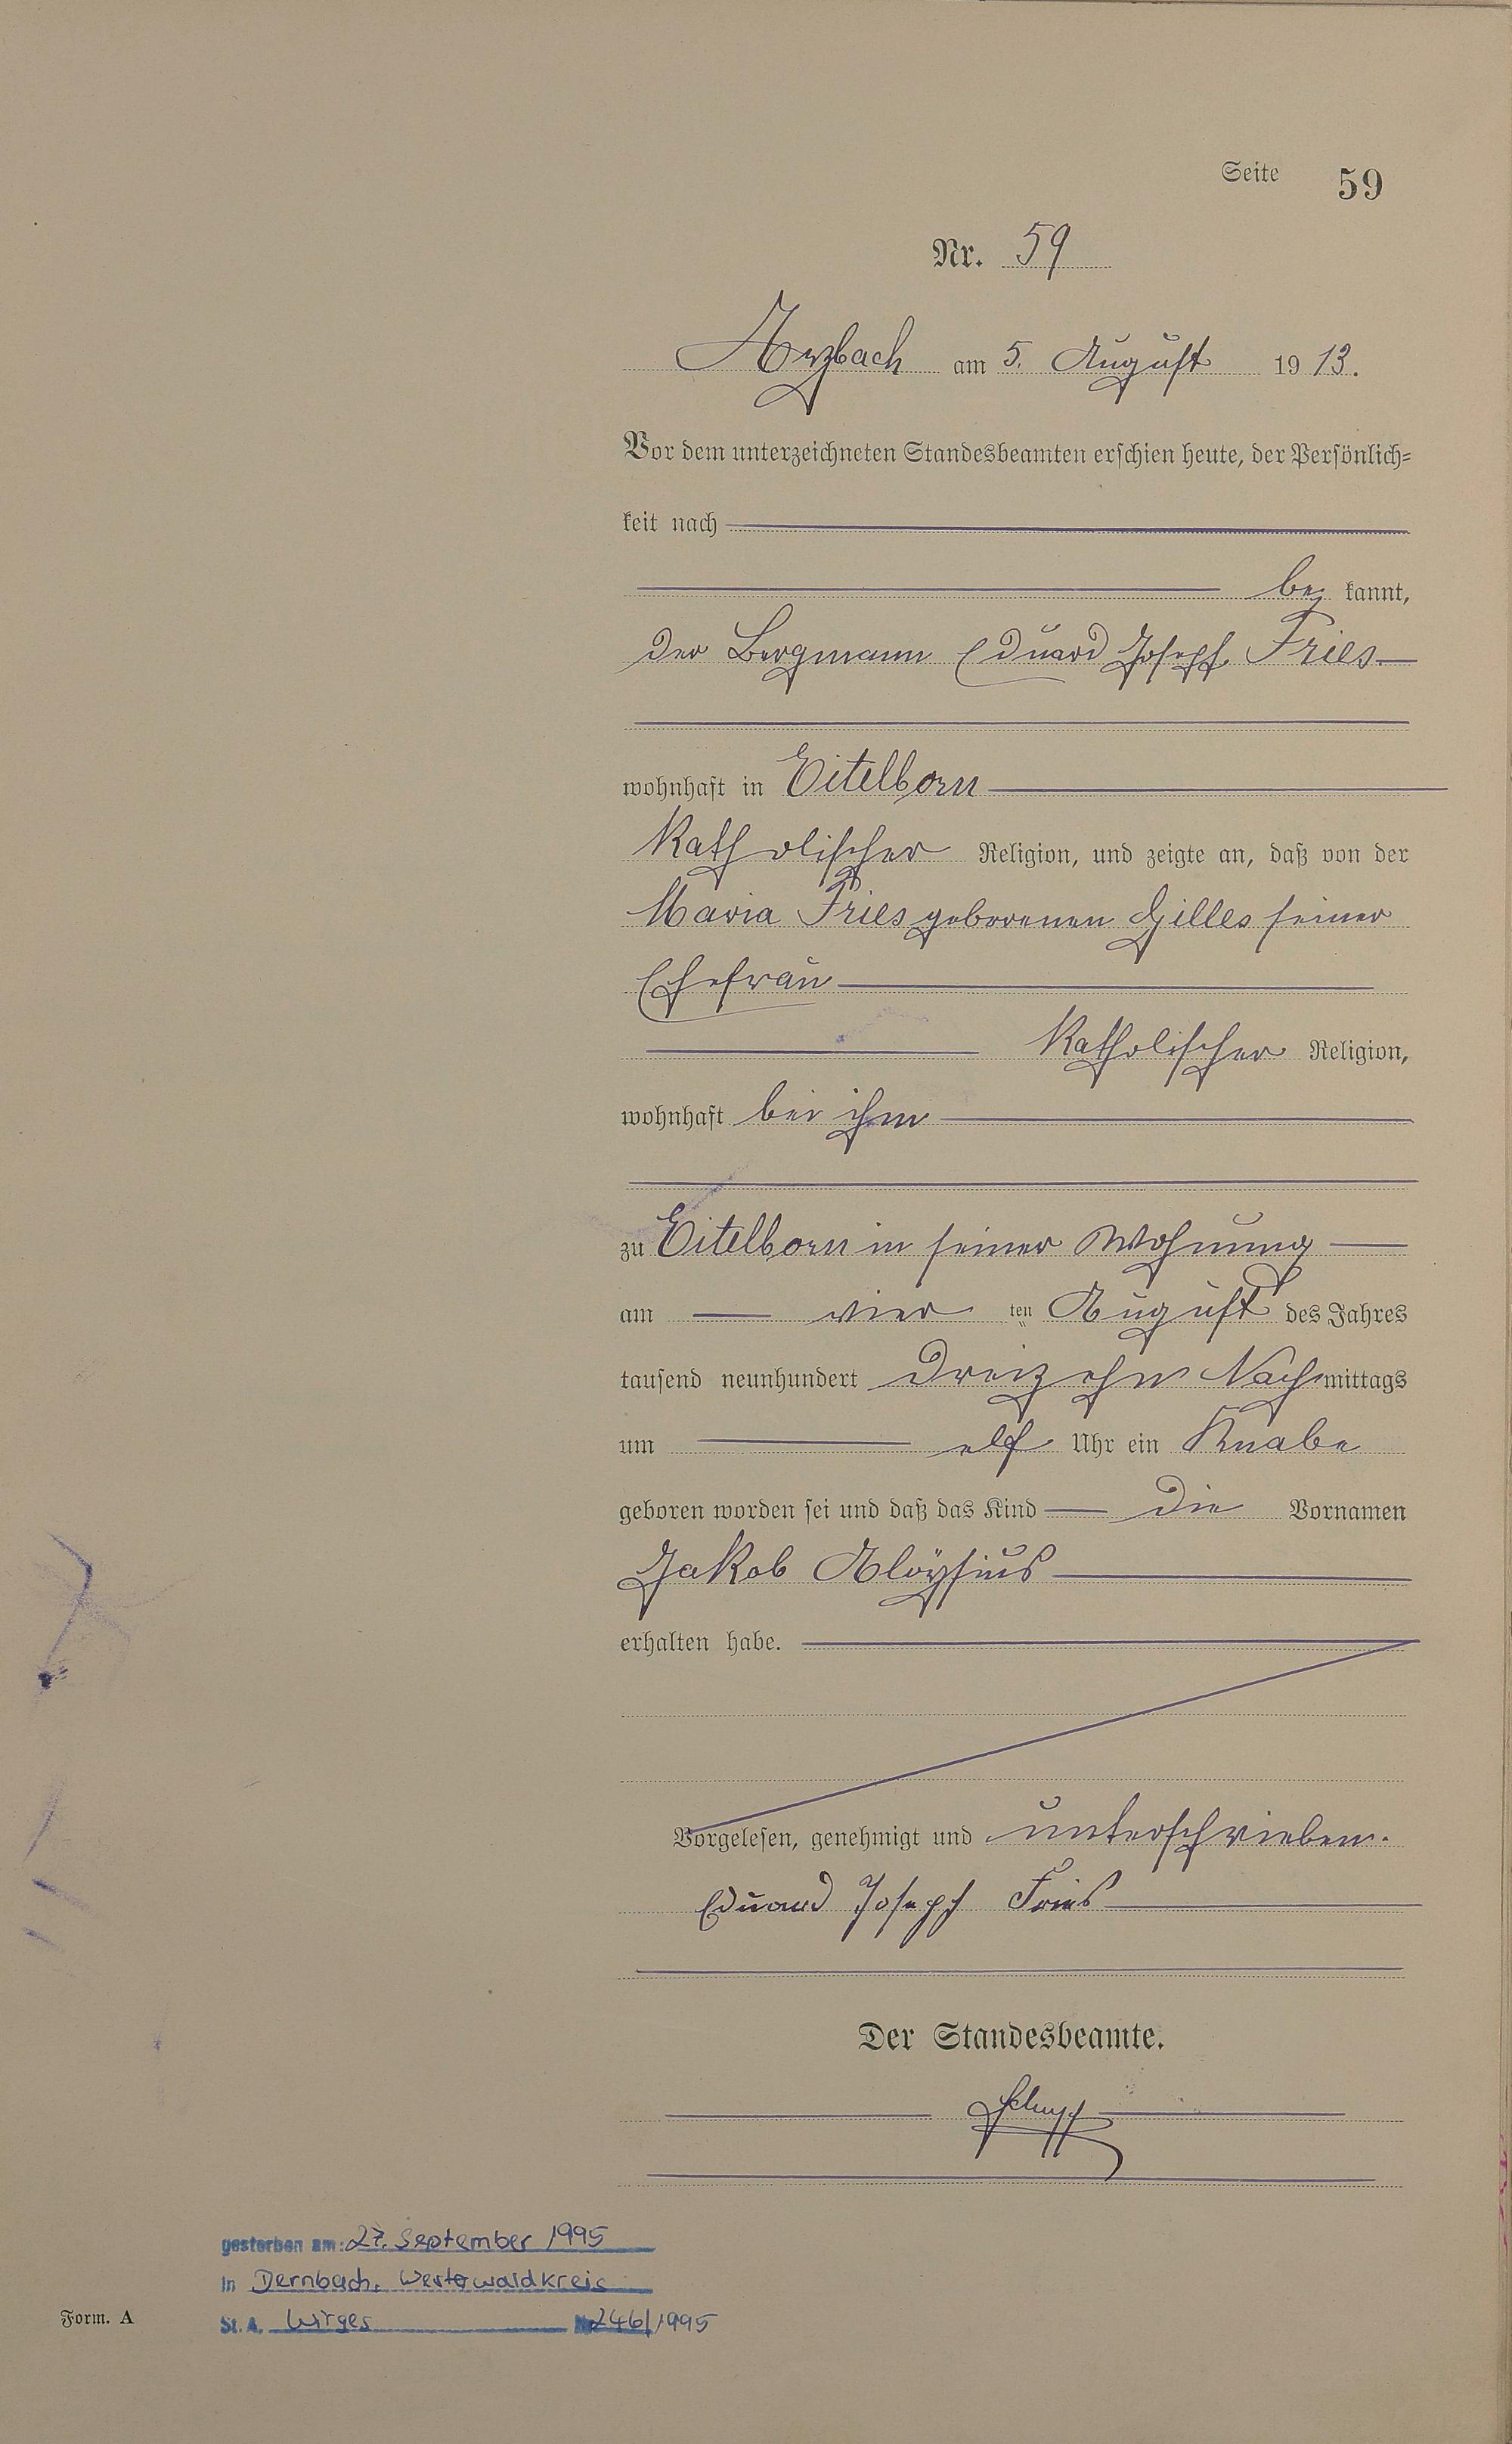 Seite 59
Nr. 59
Arzbach am 5. August 1913.
Vor dem unterzeichneten Standesbeamten erschien heute, der Persönlich-
keit nach
be kannt,
der Bergmann Eduard Joseph Fries
wohnhaft in Eitelborn
Katholischer Religion, und zeigte an, daß von der
Maria Fries geborenen Gilles seiner
Ehefrau
Katholischer Religion,
wohnhaft bei ihm
zu Eitelborn in seiner Wohnung
am vier ten August des Jahres
tausend neunhundert dreizehn Nachmittags
um elf Uhr ein Knabe
geboren worden sei und daß das Kind die Vornamen
Jakob Aloÿsius
erhalten habe.
Vorgelesen, genehmigt und unterschrieben.
Eduard Joseph Fries
Der Standesbeamte.
gestorben am: 27. September 1995
in Dernbach, Westerwaldkreis
Form. A
St. A. Wirges Nr. 246/1995